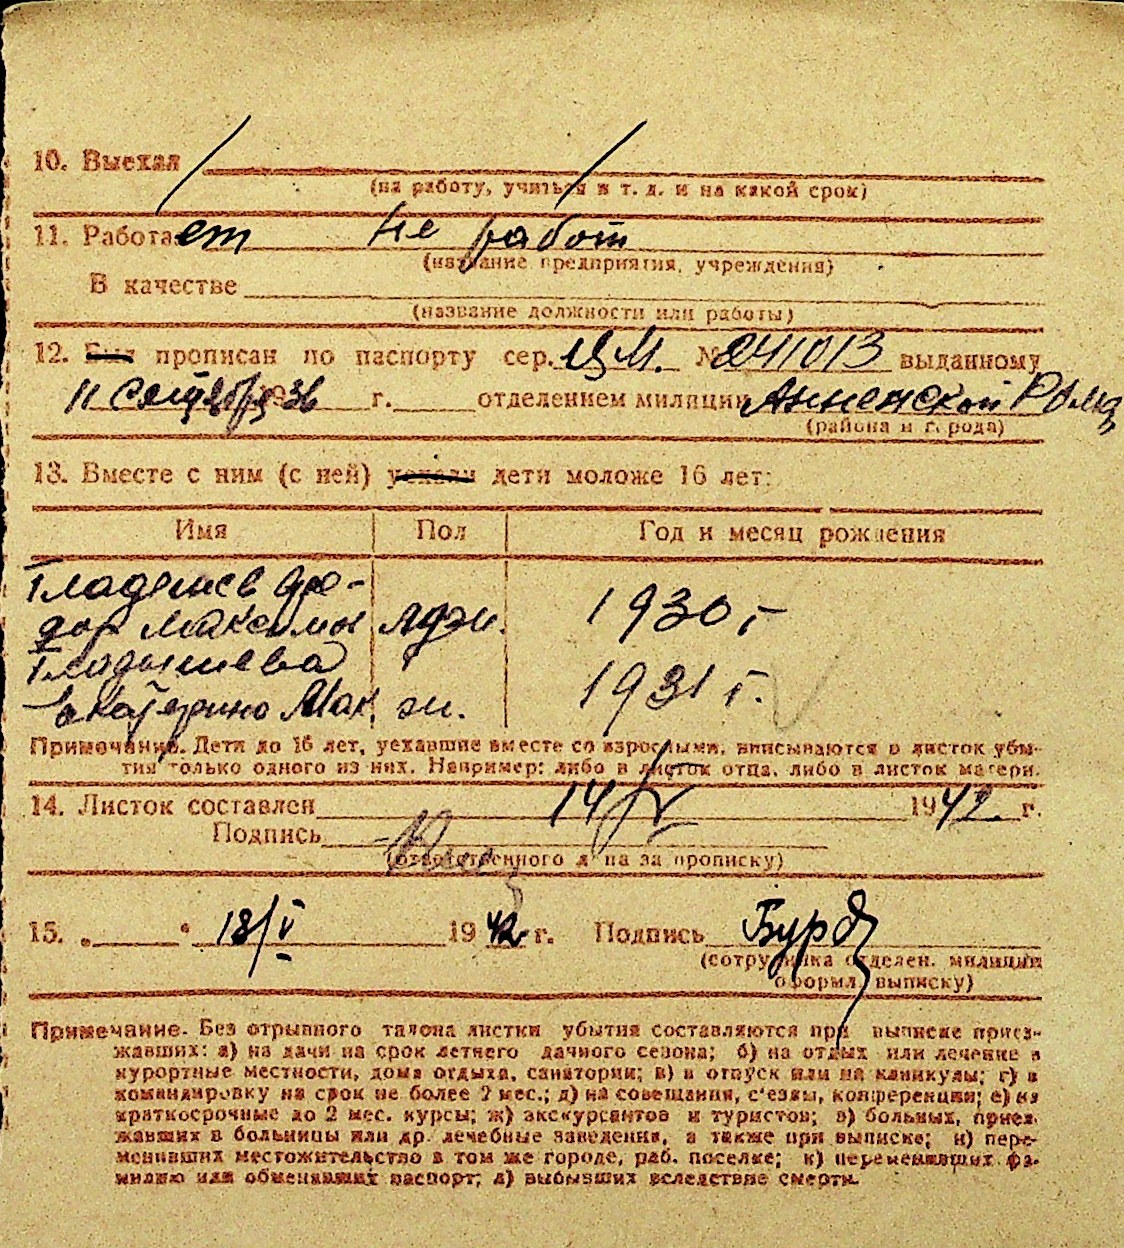 10. Выехал
(на работу, учиться и т. д. и на какой срок)
11. Работает не работ
(название предприятия, учреждения)
В качестве
(название должности или работы)
12. Был прописан по паспорту сер. ЦМ. № 241013 выданному
11 Сентября 36 г. отделением милиции Анненской
(района и города)
13. Вместе с ним (с ней) уехали дети моложе 16 лет:
Имя Пол Год и месяц рождения
Гладышев Фео-
дор Максимы 1930 г
Гладышева
Екатерина Мак ж. 1931 г.
Примечание. Дети до 16 лет, уехавшие вместе со взрослыми, вписываются в листок убы-
тия только одного из них. Например: либо в листок отца, либо в листок матери.
14. Листок составлен 14/V 1942 г.
Подпись
(ответственного лица за прописку)
15. „ “ 18/V 1942 г. Подпись
(сотрудника отделен. милиции
оформл. выписку)
Примечание. Без отрывного талона листки убытия составляются при выписке приез-
жавших: а) на дачи на срок летнего дачного сезона; б) на отдых или лечение в
курортные местности, дома отдыха, санатории; в) в отпуск или на каникулы; г) в
командировку на срок не более 2 мес.; д) на совещания, с'езды, конференции; е) на
краткосрочные до 2 мес. курсы; ж) экскурсантов и туристов; з) больных, приез-
жавших в больницы или др. лечебные заведения, а также при выписке; и) пере-
менивших местожительство в том же городе, раб. поселке; к) переменивших фа-
милию или обменявших паспорт; л) выбывших вследствие смерти.